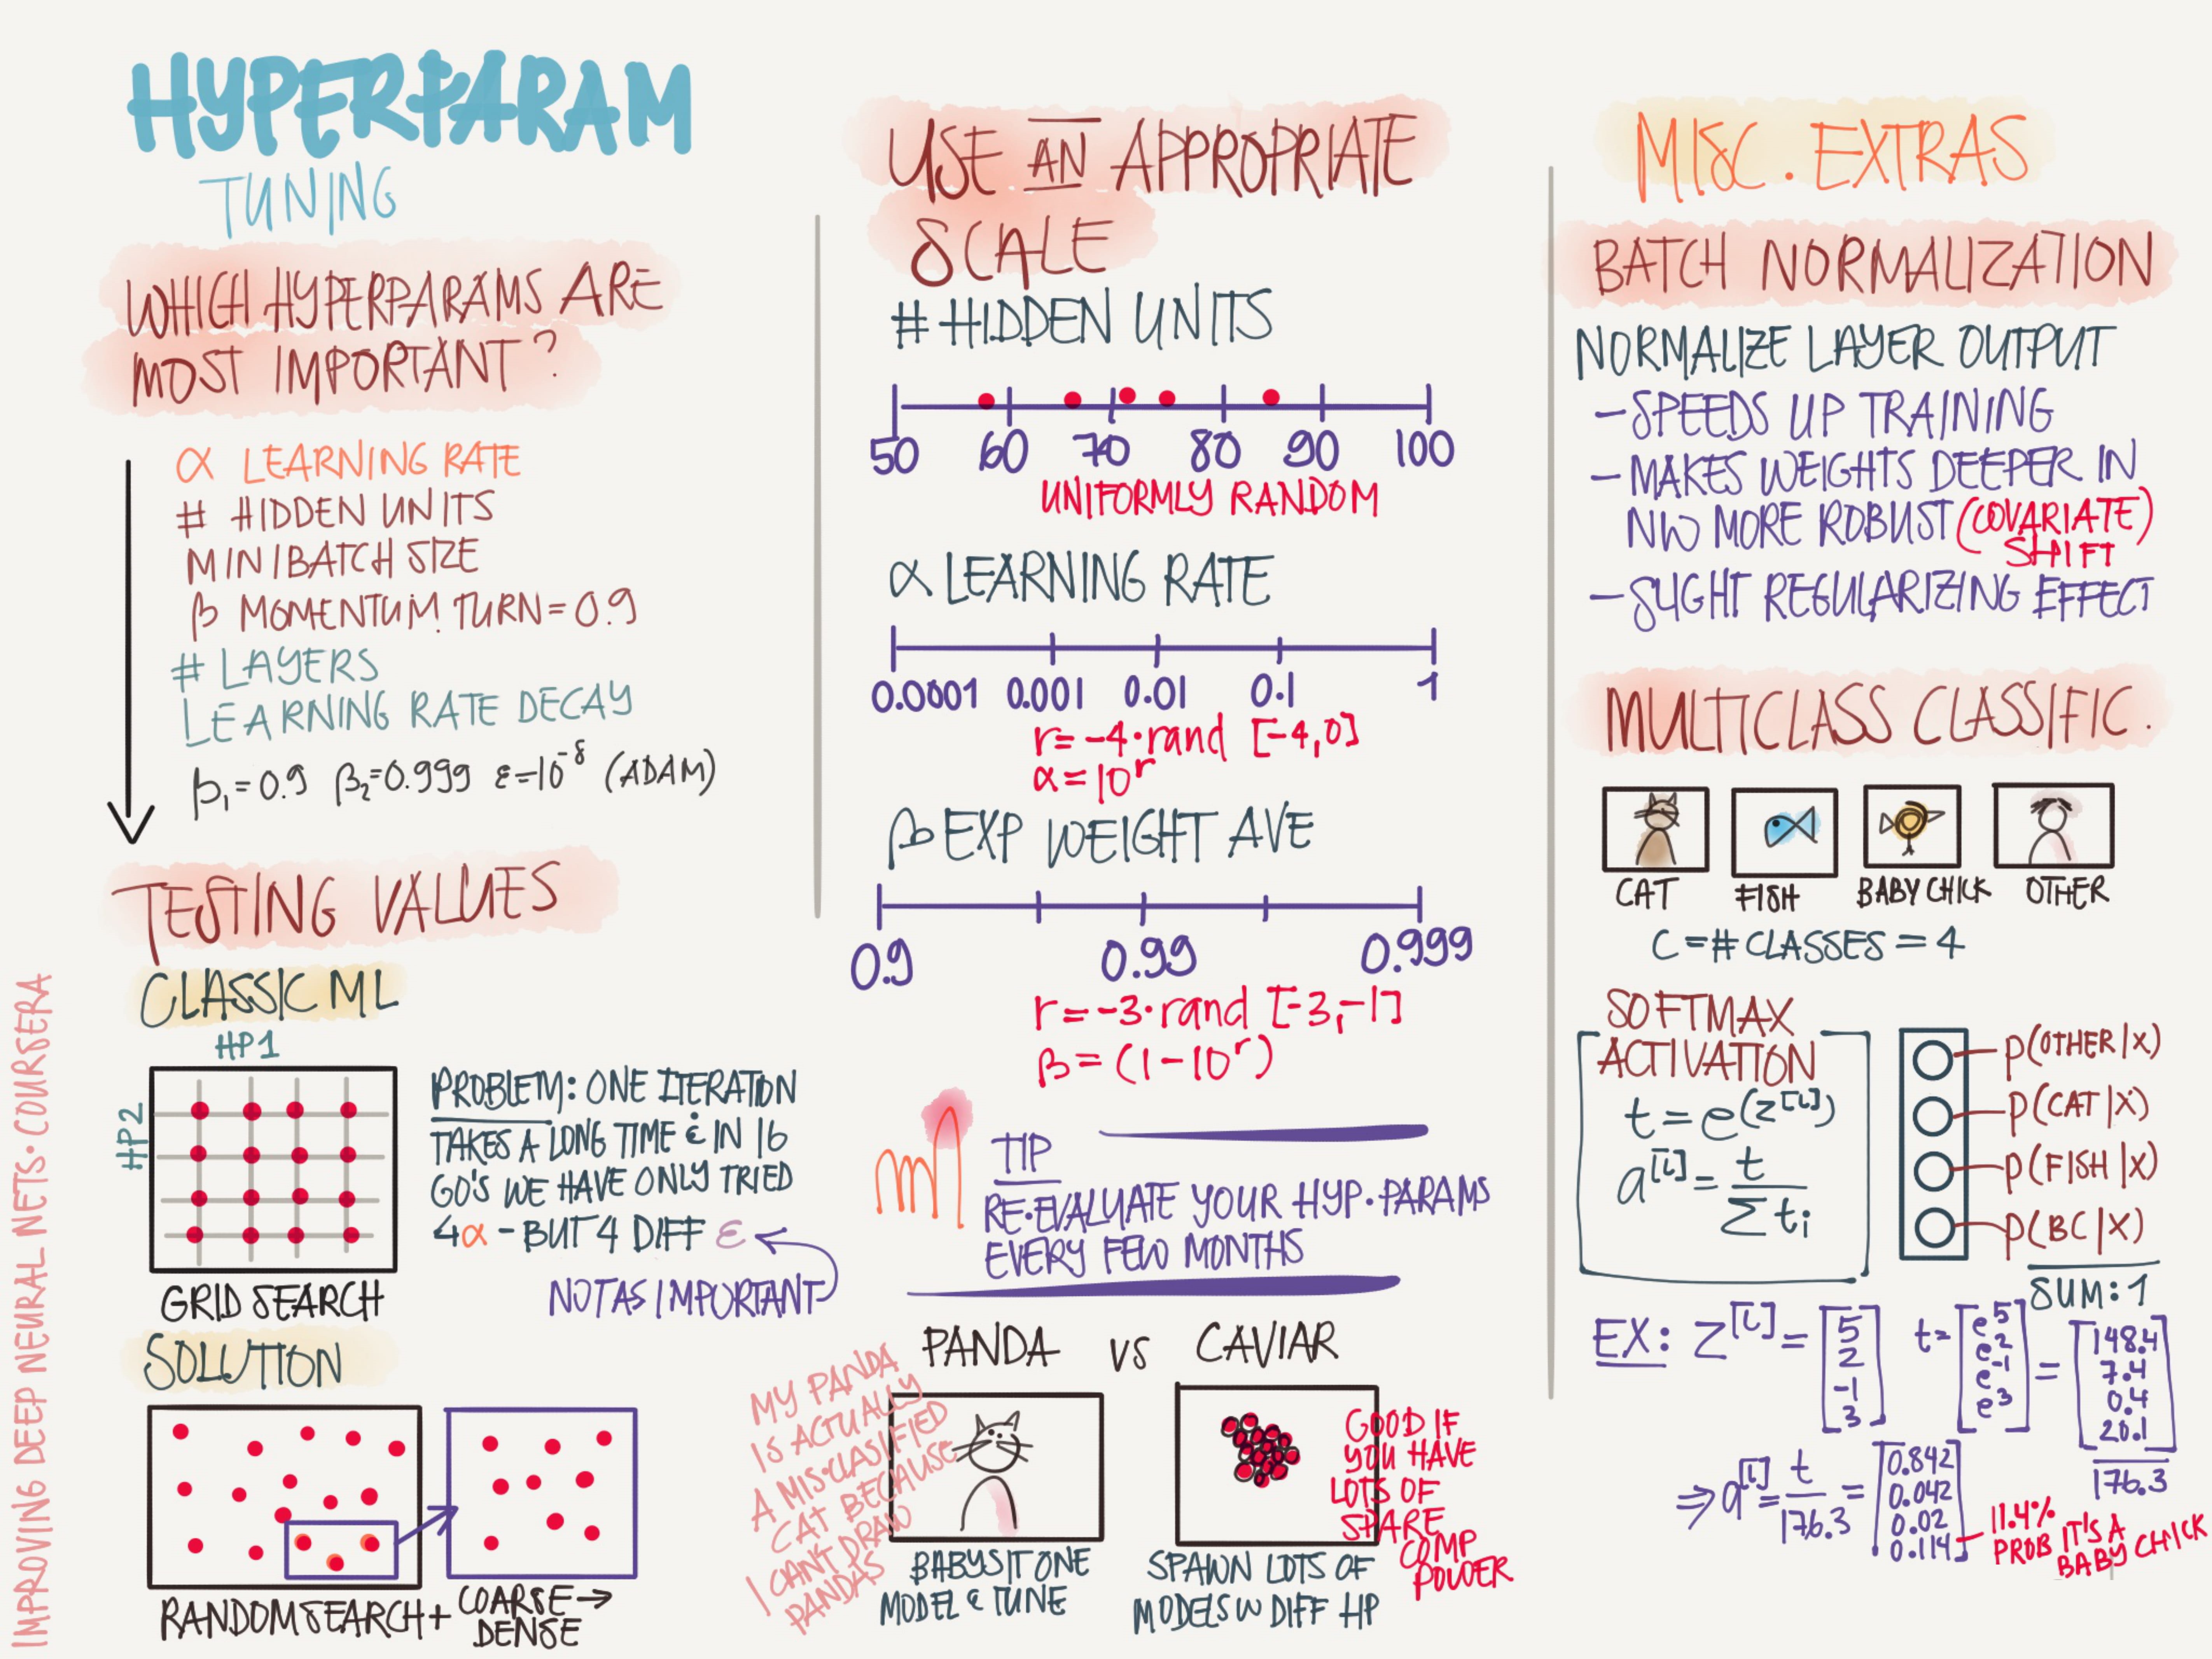 HYPERPARAM
TUNING
WHICH HYPERPARAMS ARE
MOST IMPORTANT?
α LEARNING RATE
# HIDDEN UNITS
MINIBATCH SIZE
β MOMENTUM TURN = 0.9
# LAYERS
LEARNING RATE DECAY
β₁ = 0.9 β₂=0.999 ε=10⁻⁸ (ADAM)
TESTING VALUES
CLASSIC ML
HP1
HP2
PROBLEM: ONE ITERATION
TAKES A LONG TIME & IN 16
GO'S WE HAVE ONLY TRIED
4α - BUT 4 DIFF ε
NOT AS IMPORTANT
GRID SEARCH
SOLUTION
RANDOM SEARCH +
COARSE →
DENSE
IMPROVING DEEP NEURAL NETS • COURSERA
USE AN APPROPRIATE
SCALE
# HIDDEN UNITS
50 60 70 80 90 100
UNIFORMLY RANDOM
α LEARNING RATE
0.0001 0.001 0.01 0.1 1
r = -4•rand [-4,0]
α = 10ʳ
β EXP WEIGHT AVE
0.9 0.99 0.999
r = -3•rand [-3,-1]
β = (1-10ʳ)
TIP
RE-EVALUATE YOUR HYP.PARAMS
EVERY FEW MONTHS
PANDA VS CAVIAR
MY PANDA
IS ACTUALLY
A MIS•CLASIFIED
CAT BECAUSE
I CAN'T DRAW
PANDAS
BABYSIT ONE
MODEL & TUNE
GOOD IF
YOU HAVE
LOTS OF
SPARE
COMP
POWER
SPAWN LOTS OF
MODELS W DIFF HP
MISC. EXTRAS
BATCH NORMALIZATION
NORMALIZE LAYER OUTPUT
- SPEEDS UP TRAINING
- MAKES WEIGHTS DEEPER IN
NW MORE ROBUST (COVARIATE)
SHIFT
- SLIGHT REGULARIZING EFFECT
MULTICLASS CLASSIFIC.
CAT FISH BABY CHICK OTHER
C = # CLASSES = 4
SOFTMAX
ACTIVATION
t = e^(z^[L])
a^[L] = t / Σ tᵢ
P(OTHER|X)
P(CAT|X)
P(FISH|X)
P(BC|X)
SUM: 1
EX: Z^[L] = [5 2 -1 3] t = [e⁵ e² e⁻¹ e³] = [148.4 7.4 0.4 20.1]
176.3
⇒ a^[L] = t / 176.3 = [0.842 0.042 0.02 0.114]
11.4%
PROB IT'S A
BABY CHICK